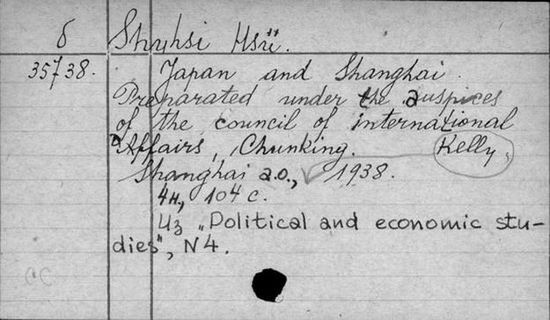 б Shuhsi Hsü.
35738. Japan and Shanghai.
Preparated under the auspices
of the council of international
Affairs, Chunking. Kelly,
Shanghai a.o., 1938.
4н, 104 с.
Из „Political and economic stu-
dies", N 4.